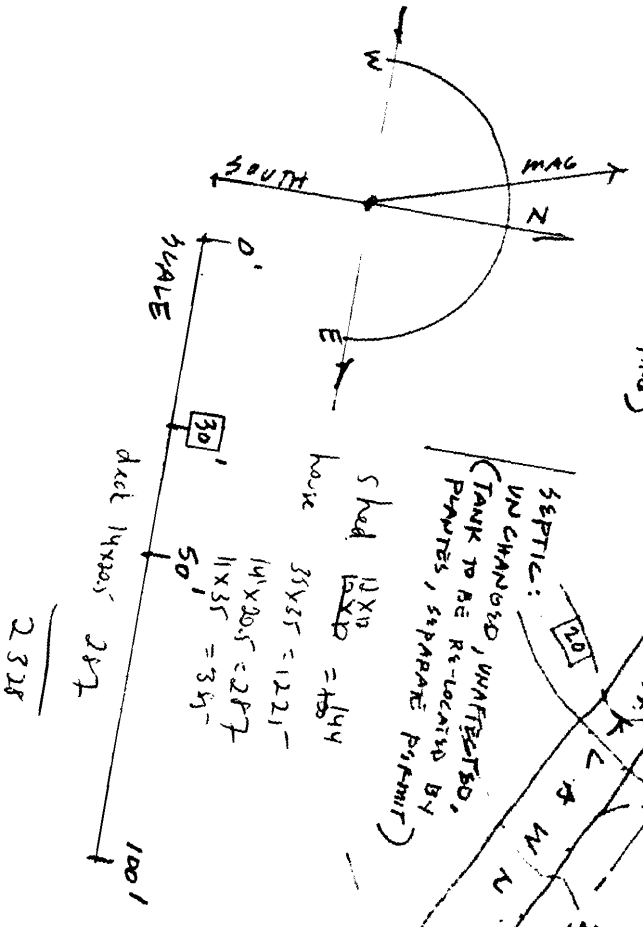 W
MAG
N
SOUTH
E
0'
SCALE
30'
50'
100'
20
SEPTIC:
UNCHANGED, UNAFFECTED,
(TANK TO BE RE-LOCATED BY
PLANTES, SEPARATE PERMIT)
Shed 12x12 = 144
house 35x35 = 1225
14x20.5 = 287
11x35 = 385
deck 14x20.5 287
2328
LAWN